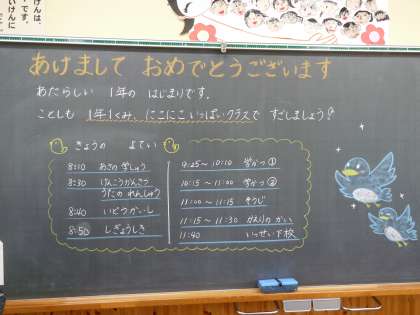 あけまして おめでとうございます
あたらしい 1年の はじまりです。
ことしも 1年1くみ、にこにこいっぱいクラスで すごしましょう♪
きょうの よてい
8:10 あさの 学しゅう
8:30 けんこうかんさつ
うたの れんしゅう
8:40 いどうかいし
8:50 しぎょうしき
9:25〜10:10 学かつ①
10:15〜11:00 学かつ②
11:00〜11:15 そうじ
11:15〜11:30 かえりの かい
11:40 いっせい下校